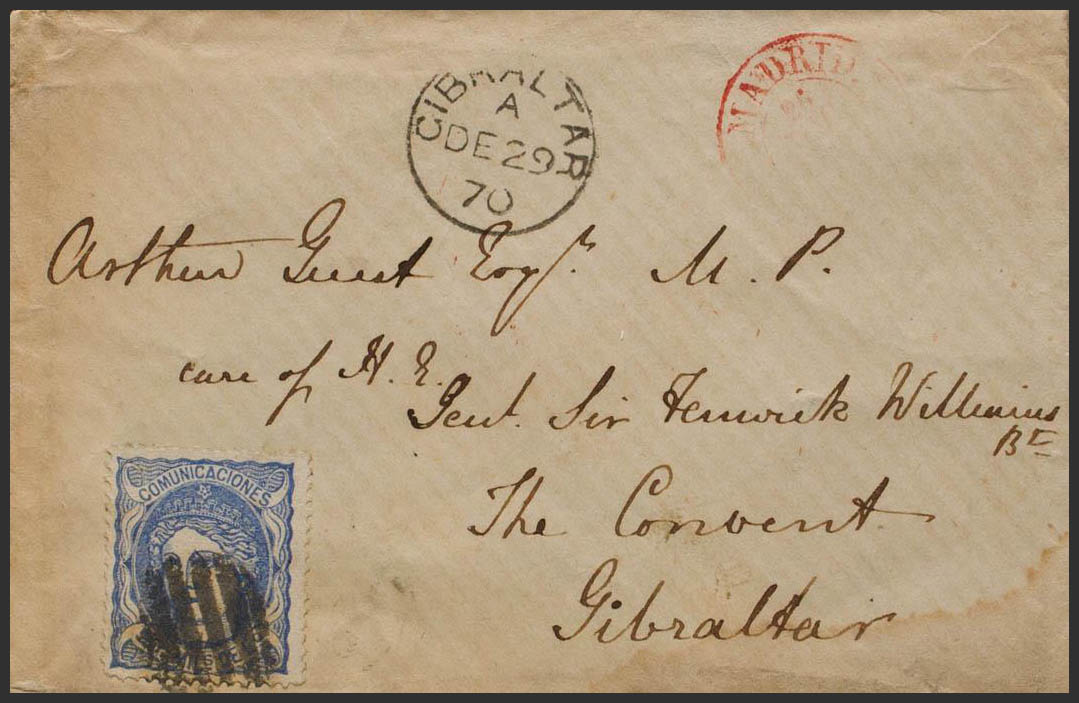 MADRID
26
GIBRALTAR
A
DE 29
70
Arthur Guest Esqr. M. P.
care of H. E.
Genl. Sir Fenwick Williams
Bt
The Convent
Gibraltar
COMUNICACIONES